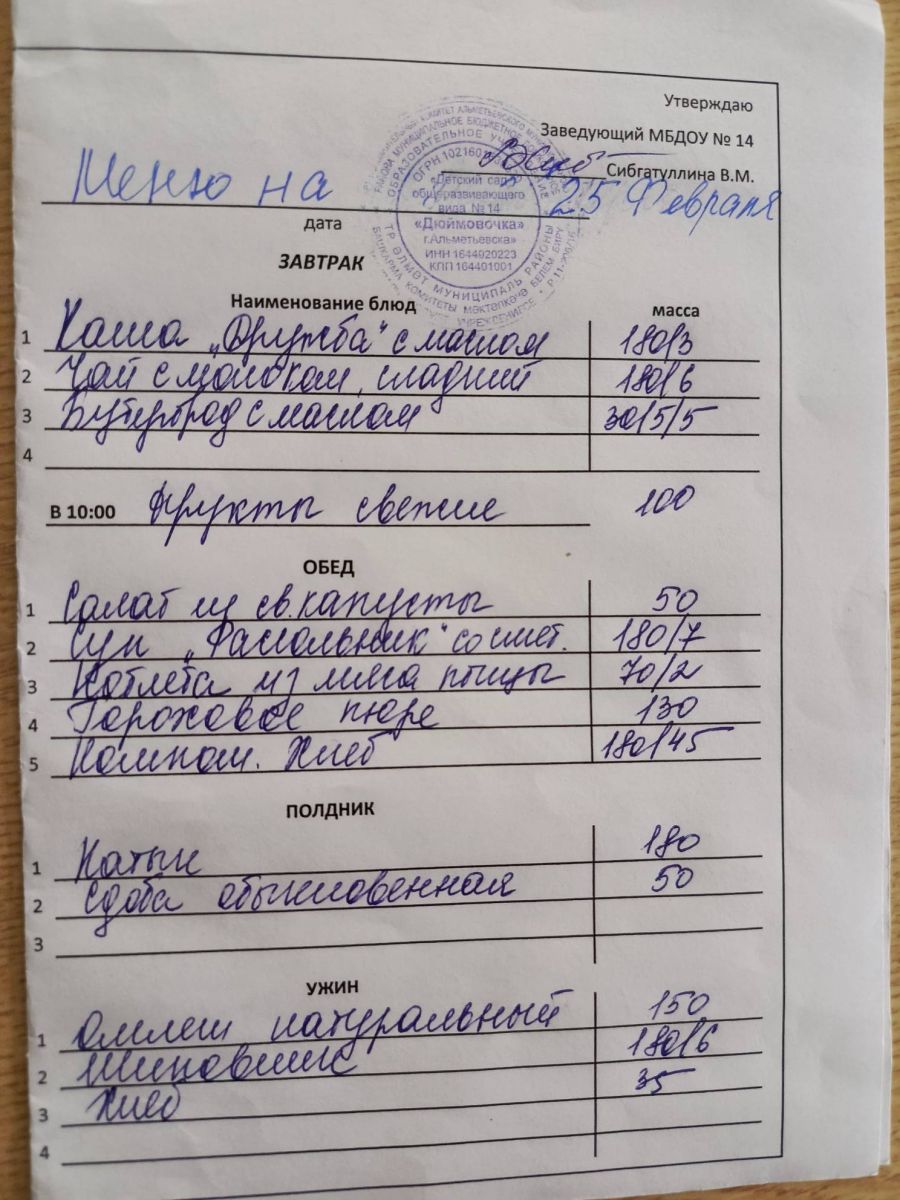 Утверждаю
Заведующий МБДОУ № 14
Сибгатуллина В.М.
Меню на 25 Февраля
дата
«Детский сад
общеразвивающего
вида № 14
«Дюймовочка»
г.Альметьевска»
ИНН 1644020223
КПП 164401001
ЗАВТРАК
Наименование блюд масса
1 Каша „Дружба" с маслом 180/3
2 Чай с молоком, сладкий 180/6
3 Бутерброд с маслом 30/5/5
4
В 10:00 Фрукты свежие 100
ОБЕД
1 Салат из св. капусты 50
2 Суп „Рассольник" со смет. 180/7
3 Котлета из мяса птицы 70/2
4 Гороховое пюре 130
5 Компот. Хлеб 180/45
ПОЛДНИК
1 Катык 180
2 Сдоба обыкновенная 50
3
УЖИН
1 Омлет натуральный 150
2 Шиповник 180/6
3 Хлеб 35
4